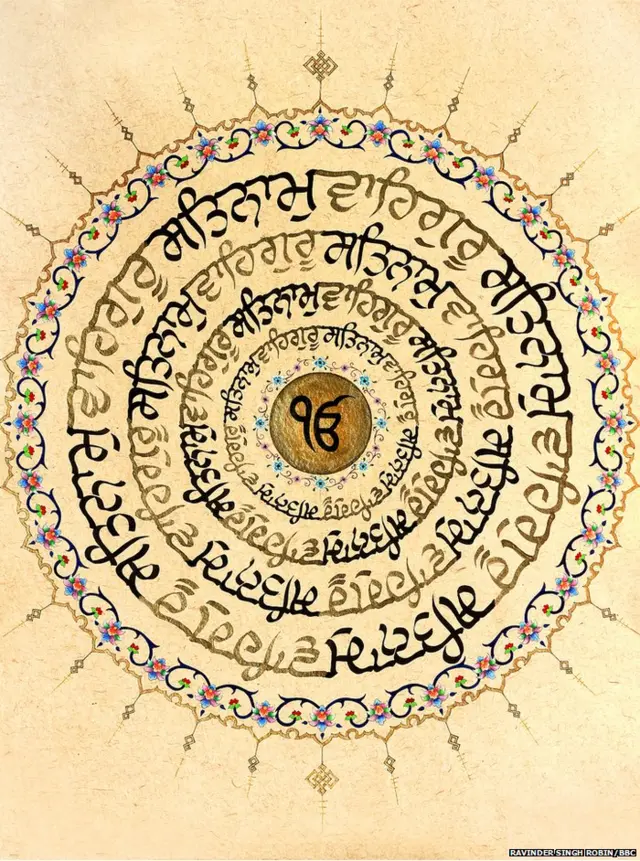 ਸਤਿਨਾਮੁ ਵਾਹਿਗੁਰੂ ਸਤਿਨਾਮੁ ਵਾਹਿਗੁਰੂ ਸਤਿਨਾਮੁ ਵਾਹਿਗੁਰੂ ਸਤਿਨਾਮੁ ਵਾਹਿਗੁਰੂ
ਸਤਿਨਾਮੁ ਵਾਹਿਗੁਰੂ ਸਤਿਨਾਮੁ ਵਾਹਿਗੁਰੂ ਸਤਿਨਾਮੁ ਵਾਹਿਗੁਰੂ ਸਤਿਨਾਮੁ ਵਾਹਿਗੁਰੂ
ਸਤਿਨਾਮੁ ਵਾਹਿਗੁਰੂ ਸਤਿਨਾਮੁ ਵਾਹਿਗੁਰੂ ਸਤਿਨਾਮੁ ਵਾਹਿਗੁਰੂ ਸਤਿਨਾਮੁ ਵਾਹਿਗੁਰੂ
ਸਤਿਨਾਮੁ ਵਾਹਿਗੁਰੂ ਸਤਿਨਾਮੁ ਵਾਹਿਗੁਰੂ ਸਤਿਨਾਮੁ ਵਾਹਿਗੁਰੂ ਸਤਿਨਾਮੁ ਵਾਹਿਗੁਰੂ
ੴ
RAVINDER SINGH ROBIN/BBC